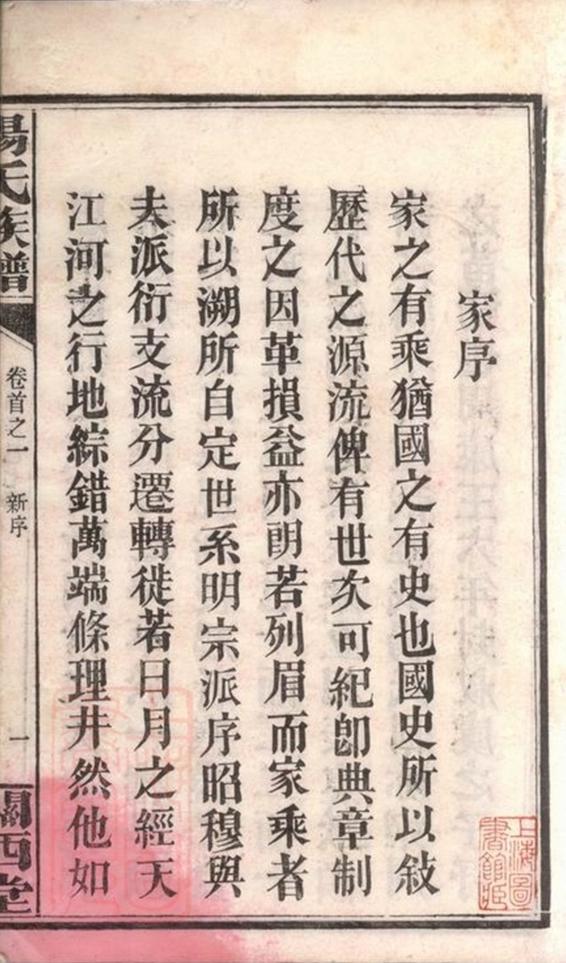 家序
家之有乘猶國之有史也國史所以敍
歷代之源流俾有世次可紀卽典章制
度之因革損益亦朗若列眉而家乘者
所以溯所自定世系明宗派序昭穆與
夫派衍支流分遷轉徙若日月之經天
江河之行地綜錯萬端條理井然他如
楊氏族譜
卷首之一 新序
一
關西堂
上海圖
書館藏